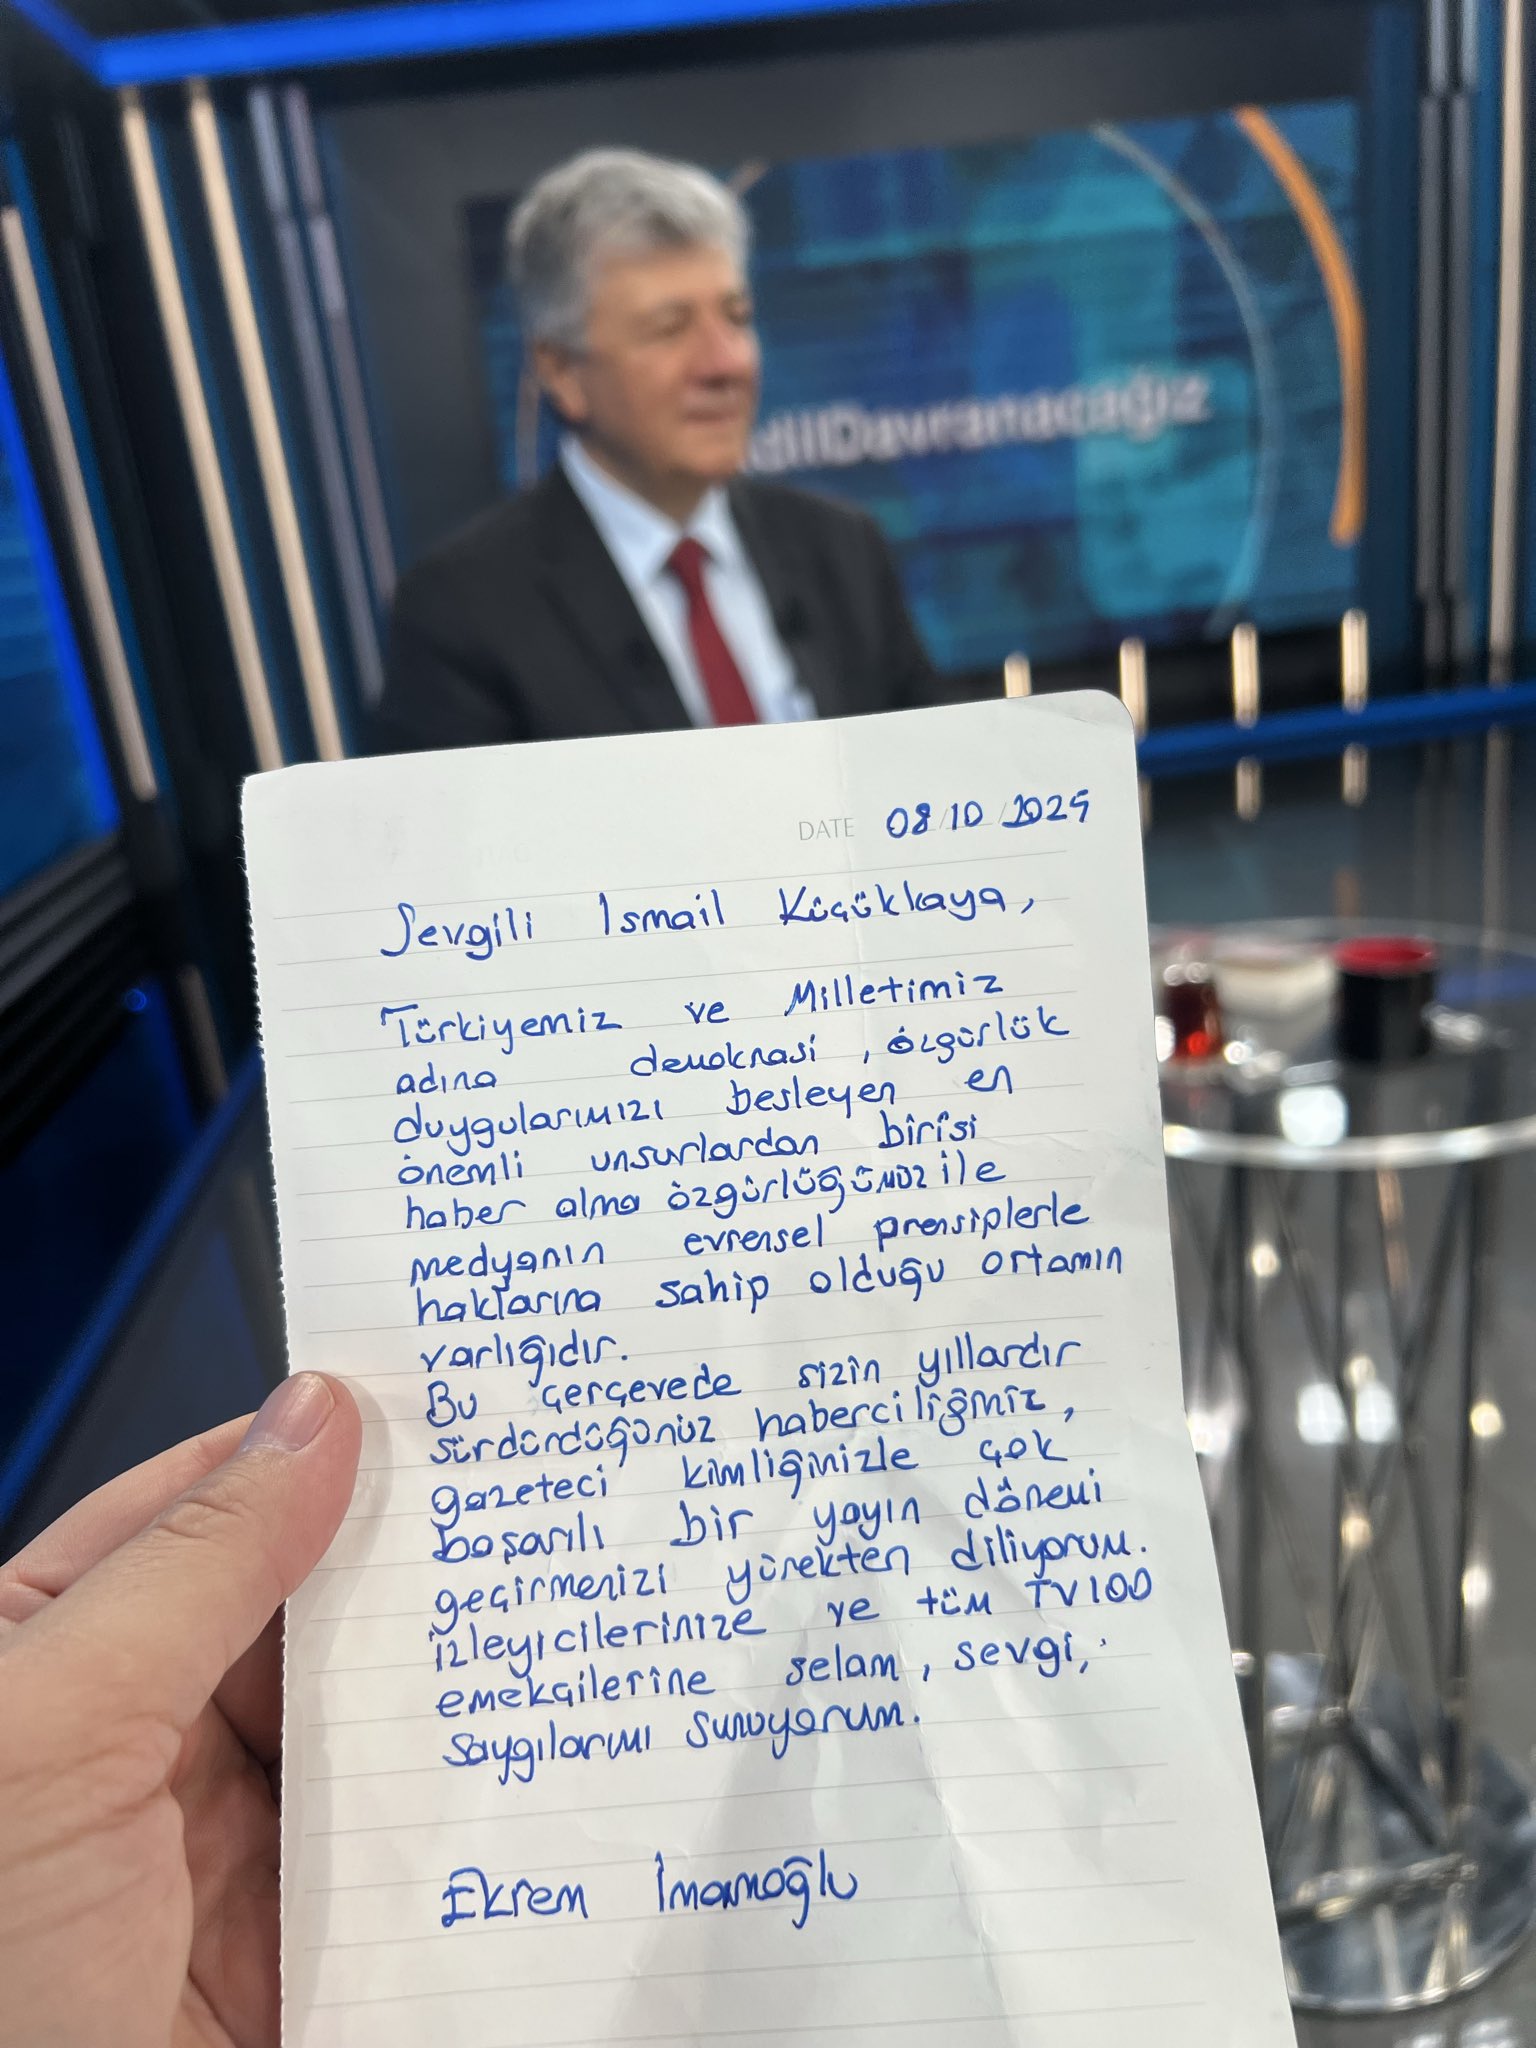 dilDavranacağız
DATE 08/10/2025
Sevgili Ismail Küçükkaya,
Türkiyemiz ve Milletimiz
adına demokrasi, özgürlük
duygularımızı besleyen en
önemli unsurlardan birisi
haber alma özgürlüğümüz ile
medyanın evrensel prensiplerle
haklarına sahip olduğu ortamın
varlığıdır.
Bu çerçevede sizin yıllardır
sürdürdüğünüz haberciliğiniz,
gazeteci kimliğinizle çok
başarılı bir yayın dönemi
geçirmenizi yürekten diliyorum.
İzleyicilerinize ve tüm TV100
emekçilerine selam, sevgi,
saygılarımı sunuyorum.
Ekrem İmamoğlu